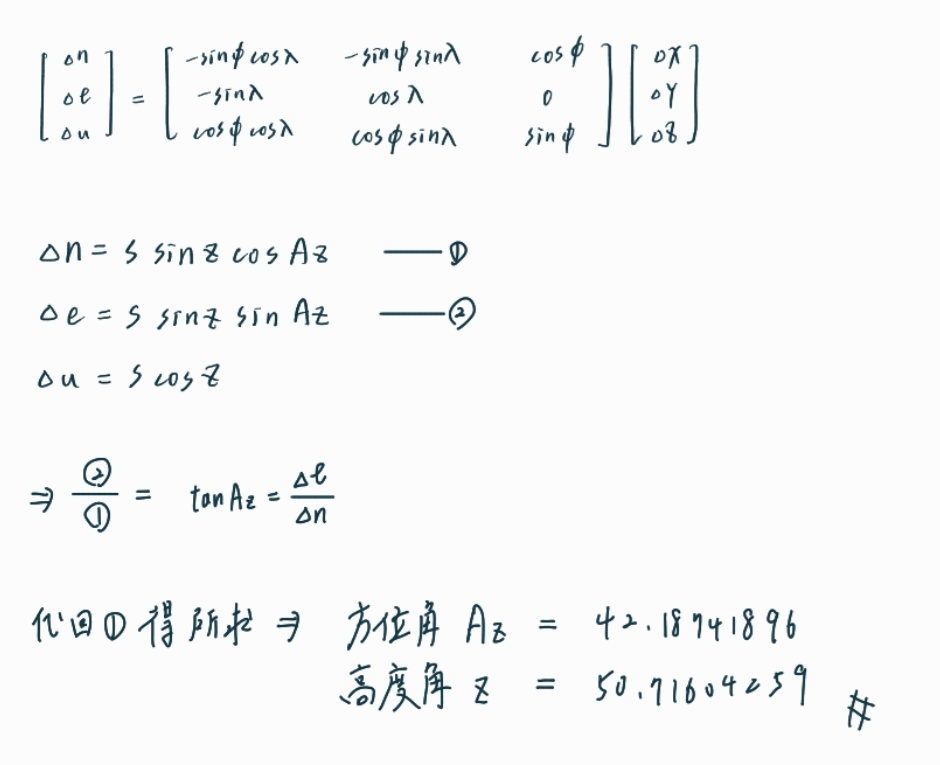 [Δn Δe Δu] = [-sinφcosλ -sinφsinλ cosφ
-sinλ cosλ 0
cosφcosλ cosφsinλ sinφ] [ΔX ΔY ΔZ]
Δn = s sin z cos Az —— ①
Δe = s sin z sin Az —— ②
Δu = s cos z
⇒ ②/① = tan Az = Δe/Δn
代回①得所求 ⇒ 方位角 Az = 42.18741896
高度角 z = 50.71604259 #